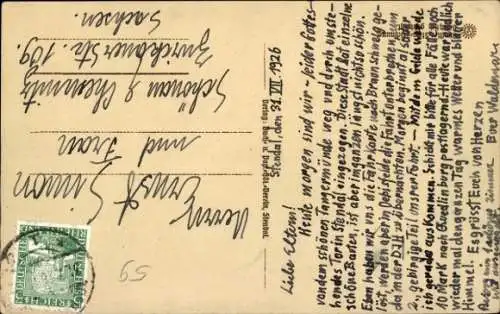 Stendal, den 31. VII. 1926
Liebe Eltern!
Heute morgen sind wir leider Gottes
von dem schönen Tangermünde weg und durch ein stehendes
Tor in Stendal eingezogen. Diese Stadt hat einzelne
schöne Bauten, ist aber im ganzen längst nicht so schön.
Eben haben wir uns die Fahrkarte nach Braunschweig ge-
löst, werden aber in Oebisfelde die Fahrt unterbrechen, um
da in der D.J.H. zu übernachten. Morgen beginnt also der
2., gebirgige Teil unsrer Fahrt. – Mit dem Gelde werde
ich gerade auskommen. Schickt mir bitte für alle Fälle noch
10 Mark nach Quedlinburg postlagernd. Heute war endlich
wieder mal den ganzen Tag warmes Wetter und blauer
Himmel. Es grüsst Euch von Herzen
Euer Waldemar.
Herrn Ernst Simon
und Frau
Schönau b. Chemnitz
Zwickauer Str. 109.
Sachsen.
59
DEUTSCHES REICH